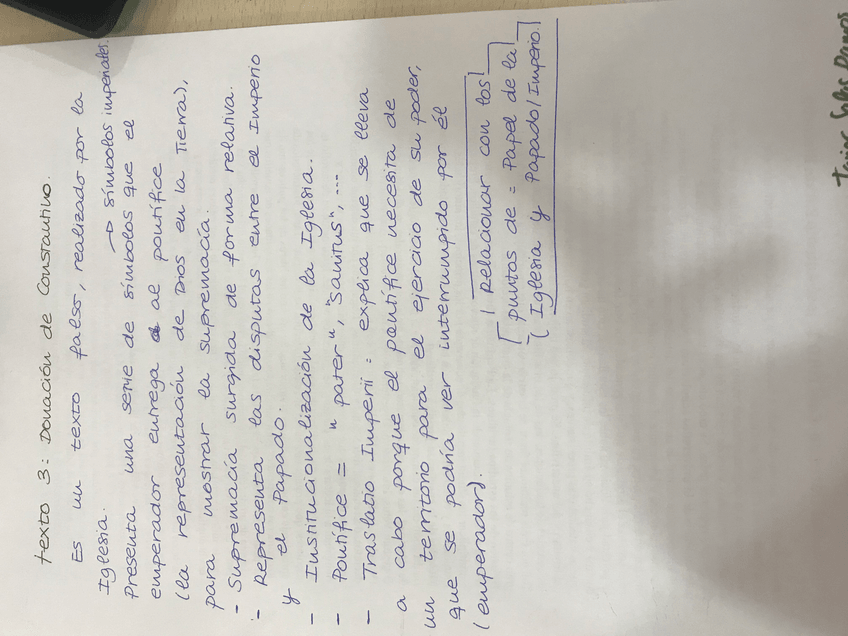 texto 3: Donación de Constantino.
Es un texto falso, realizado por la
Iglesia.
→ símbolos imperiales.
Presenta una serie de símbolos que el
emperador entrega al pontífice
(la representación de Dios en la Tierra),
para mostrar la supremacía.
- Supremacía surgida de forma relativa.
- Representa las disputas entre el Imperio
y el Papado.
- Institucionalización de la Iglesia.
- Pontífice = "pater", "sanitus", ...
- Traslatio Imperii: explica que se lleva
a cabo porque el pontífice necesita de
un territorio para el ejercicio de su poder,
que se podría ver interrumpido por él
(emperador).
Relacionar con los
puntos de = Papel de la
Iglesia y Papado/Imperio.